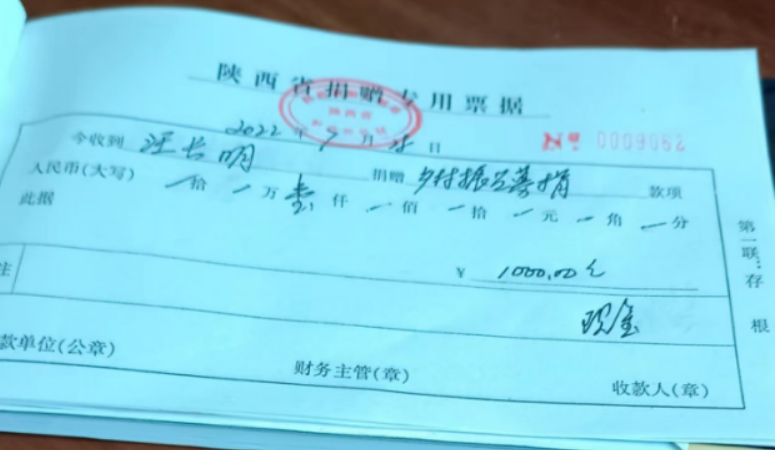 陕西省捐赠专用票据
2022年9月 日
№ 0009062
今收到 汪长明 捐赠 乡村振兴募捐 款项
人民币(大写) 一拾一万壹仟一佰一拾一元一角一分
此据
¥ 1000.00元
注
现金
款单位(公章) 财务主管(章) 收款人(章)
第一联:存根